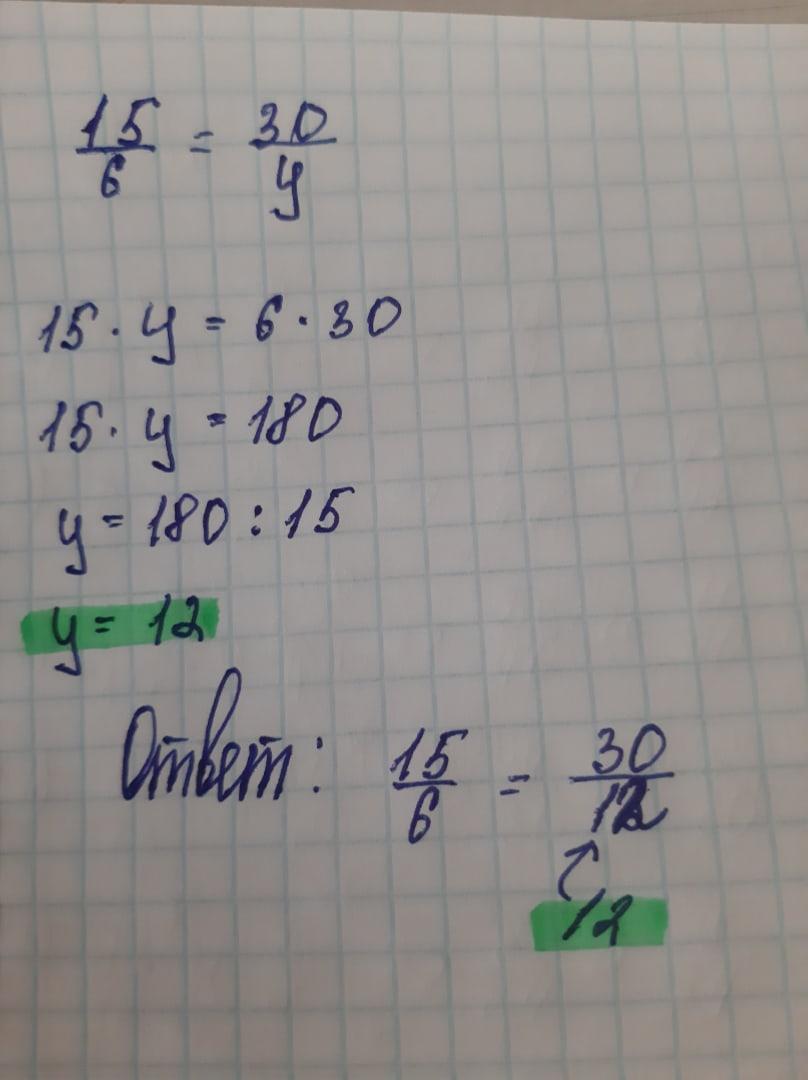 15/6 = 30/y
15 · y = 6 · 30
15 · y = 180
y = 180 : 15
y = 12
Ответ: 15/6 = 30/12
12